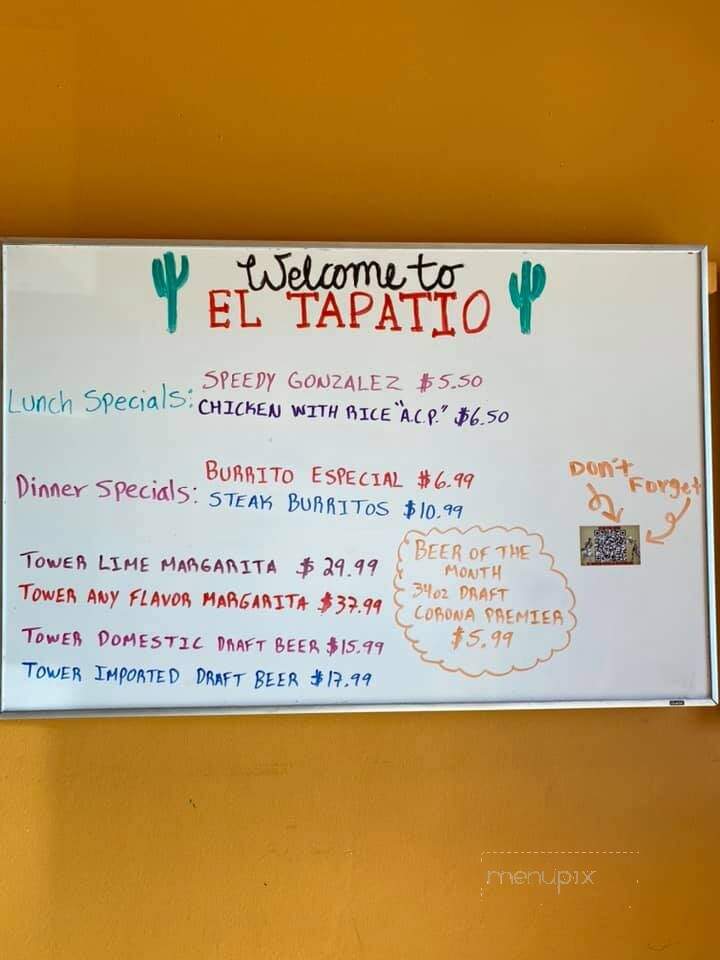 Welcome to
EL TAPATIO
Lunch Specials:
SPEEDY GONZALEZ $5.50
CHICKEN WITH RICE "A.C.P." $6.50
Dinner Specials:
BURRITO ESPECIAL $6.99
STEAK BURRITOS $10.99
Don't
Forget
TOWER LIME MARGARITA $29.99
TOWER ANY FLAVOR MARGARITA $37.99
TOWER DOMESTIC DRAFT BEER $15.99
TOWER IMPORTED DRAFT BEER $17.99
BEER OF THE
MONTH
34oz DRAFT
CORONA PREMIER
$5.99
menupix